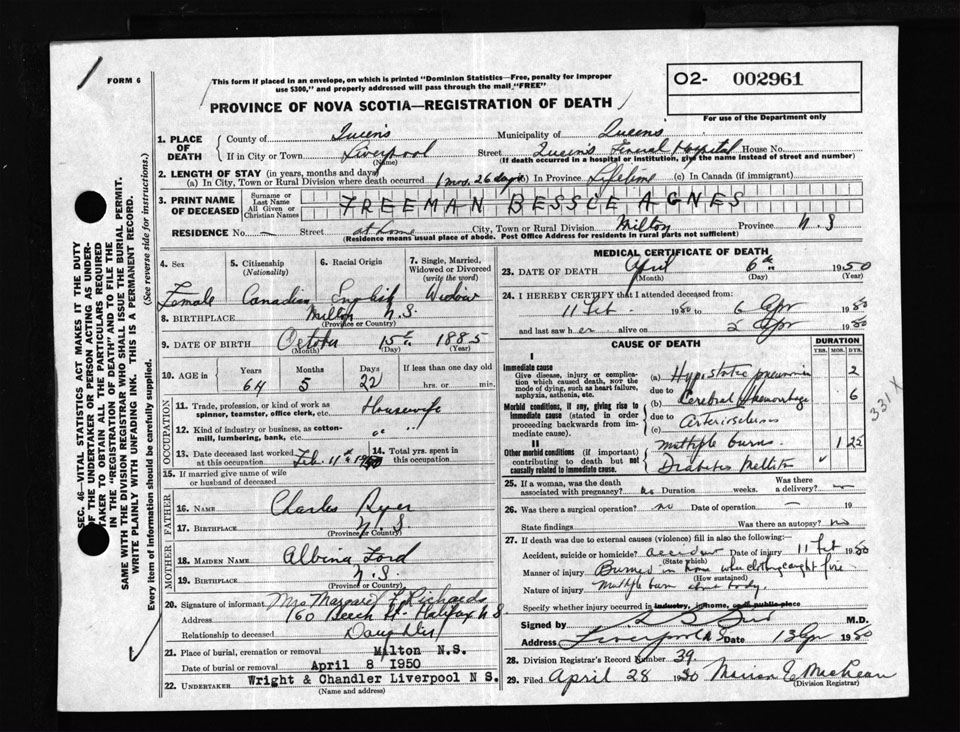 FORM 6
This form if placed in an envelope, on which is printed "Dominion Statistics—Free, penalty for improper
use $300," and properly addressed will pass through the mail "FREE"
PROVINCE OF NOVA SCOTIA—REGISTRATION OF DEATH
O2- 002961
For use of the Department only
1. PLACE OF DEATH
County of Queens Municipality of Queens
If in City or Town Liverpool Street Queens General Hospital House No.
(Name) (If death occurred in a hospital or institution, give the name instead of street and number)
2. LENGTH OF STAY (in years, months and days)
(a) In City, Town or Rural Division where death occurred 1 mos. 26 days (b) In Province Lifetime (c) In Canada (if immigrant)
3. PRINT NAME OF DECEASED
Surname or Last Name
All Given or Christian Names
FREEMAN BESSIE AGNES
RESIDENCE No. — Street at home City, Town or Rural Division Milton Province N.S
(Residence means usual place of abode. Post Office Address for residents in rural parts not sufficient)
4. Sex
Female
5. Citizenship
(Nationality)
Canadian
6. Racial Origin
English
7. Single, Married,
Widowed or Divorced
(write the word)
Widow
8. BIRTHPLACE Milton N.S.
(Province or Country)
9. DATE OF BIRTH October 15th 1885
(Month) (Day) (Year)
10. AGE in
Years Months Days If less than one day old
64 5 22 hrs. or min.
OCCUPATION
11. Trade, profession, or kind of work as
spinner, teamster, office clerk, etc. Housewife
12. Kind of industry or business, as cotton-
mill, lumbering, bank, etc. " "
13. Date deceased last worked
at this occupation Feb. 11th 1950
14. Total yrs. spent in
this occupation
15. If married give name of wife
or husband of deceased
FATHER
16. Name Charles
17. Birthplace N.S.
(Province or Country)
MOTHER
18. MAIDEN NAME Albina Ford
19. BIRTHPLACE N.S.
(Province or Country)
20. Signature of informant Mrs Margaret F Richards
Address 160 Beech St. Halifax N S
Relationship to deceased Daughter
21. Place of burial, cremation or removal Milton N.S.
Date of burial or removal April 8 1950
22. UNDERTAKER Wright & Chandler Liverpool N S.
(Name and address)
MEDICAL CERTIFICATE OF DEATH
23. DATE OF DEATH April 6th 1950
(Month) (Day) (Year)
24. I HEREBY CERTIFY that I attended deceased from:
11 Feb. 1950 to 6 Apr 1950
and last saw her alive on 2 Apr 1950
CAUSE OF DEATH
DURATION
YRS. MOS. DYS.
I
Immediate cause
Give disease, injury or complica-
tion which caused death, NOT the
mode of dying, such as heart failure,
asphyxia, asthenia, etc.
(a) Hypostatic pneumonia 2
due to
Morbid conditions, if any, giving rise to
immediate cause (stated in order
proceeding backwards from im-
mediate cause).
(b) Cerebral Haemorrhage 6
due to
(c) Arteriosclerosis
II
Other morbid conditions (if important)
contributing to death but not
causally related to immediate cause.
multiple burns 1 25
Diabetes Mellitus ✓
331 X
25. If a woman, was the death
associated with pregnancy? no Duration weeks. Was there
a delivery? —
26. Was there a surgical operation? no Date of operation — 19
State findings Was there an autopsy? no
27. If death was due to external causes (violence) fill in also the following:
Accident, suicide or homicide? accident Date of injury 11 Feb 1950
(State which)
Manner of injury Burned in home when clothing caught fire
(How sustained)
Nature of injury multiple burns about body
Specify whether injury occurred in industry, in home, or in public place
Signed by M.D.
Address Liverpool N.S Date 13 Apr 1950
28. Division Registrar's Record Number 39
29. Filed April 28 1950 Marion E MacLean
(Division Registrar)
SEC. 46—VITAL STATISTICS ACT MAKES IT THE DUTY
OF THE UNDERTAKER OR PERSON ACTING AS UNDER-
TAKER TO OBTAIN ALL THE PARTICULARS REQUIRED
IN THE "REGISTRATION OF DEATH" AND TO FILE THE
SAME WITH THE DIVISION REGISTRAR WHO SHALL ISSUE THE BURIAL PERMIT.
WRITE PLAINLY WITH UNFADING INK. THIS IS A PERMANENT RECORD.
Every item of information should be carefully supplied. (See reverse side for instructions.)